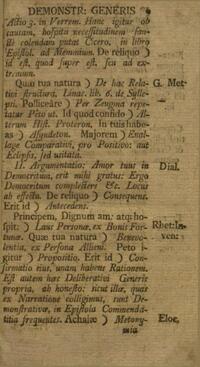 DEMONSTR: GENERIS
Actio 3. in Verrem. Hanc igitur ob
cautam, hospita necessitudinem san-
ctè colendam putat Cicero, in libro
Epistol. ad Memmium. De reliquo )
id est, quod super est, seu ad ex-
tremum.
Quàm tua natura ) De hac Rela- G. Met-
tivi structura, Linac. lib. 6. de Sylle-
psi. Polliceâre ) Per Zeugma repe-
tatur Peto ut. Id quod confido ) Al-
terum Hist. Proteron. In tuis habe-
as ) Asyndeton. Majorem ) Enal-
lage Comparativi, pro Positivo: aut
Eclypsis, sed usitata.
II. Argumentatio: Amor tuus in Dial.
Democratum, erit mihi gratus: Ergo
Democritum complectere &c. Locus
ab effectu. De reliquo ) Consequens.
Erit id ) Antecedens.
Principem, Dignum am: atq; ho-
spit: ) Laus Personæ, ex Bonis For- Rhet: In-
tunæ. Quæ tua natura ) Benevo- ven:
lentia, ex Persona Alliena. Peto i-
gitur ) Propositio. Erit id ) Con-
firmatio eius, unam habens Rationem.
Est autem hæc Deliberativi Generis
propria, ab honesto: sicut illæ, quas
ex Narratione colligimus, sunt De-
monstrativæ, in Epistola Commenda-
titia frequentes. Achaiæ ) Metony- Eloc.
mia